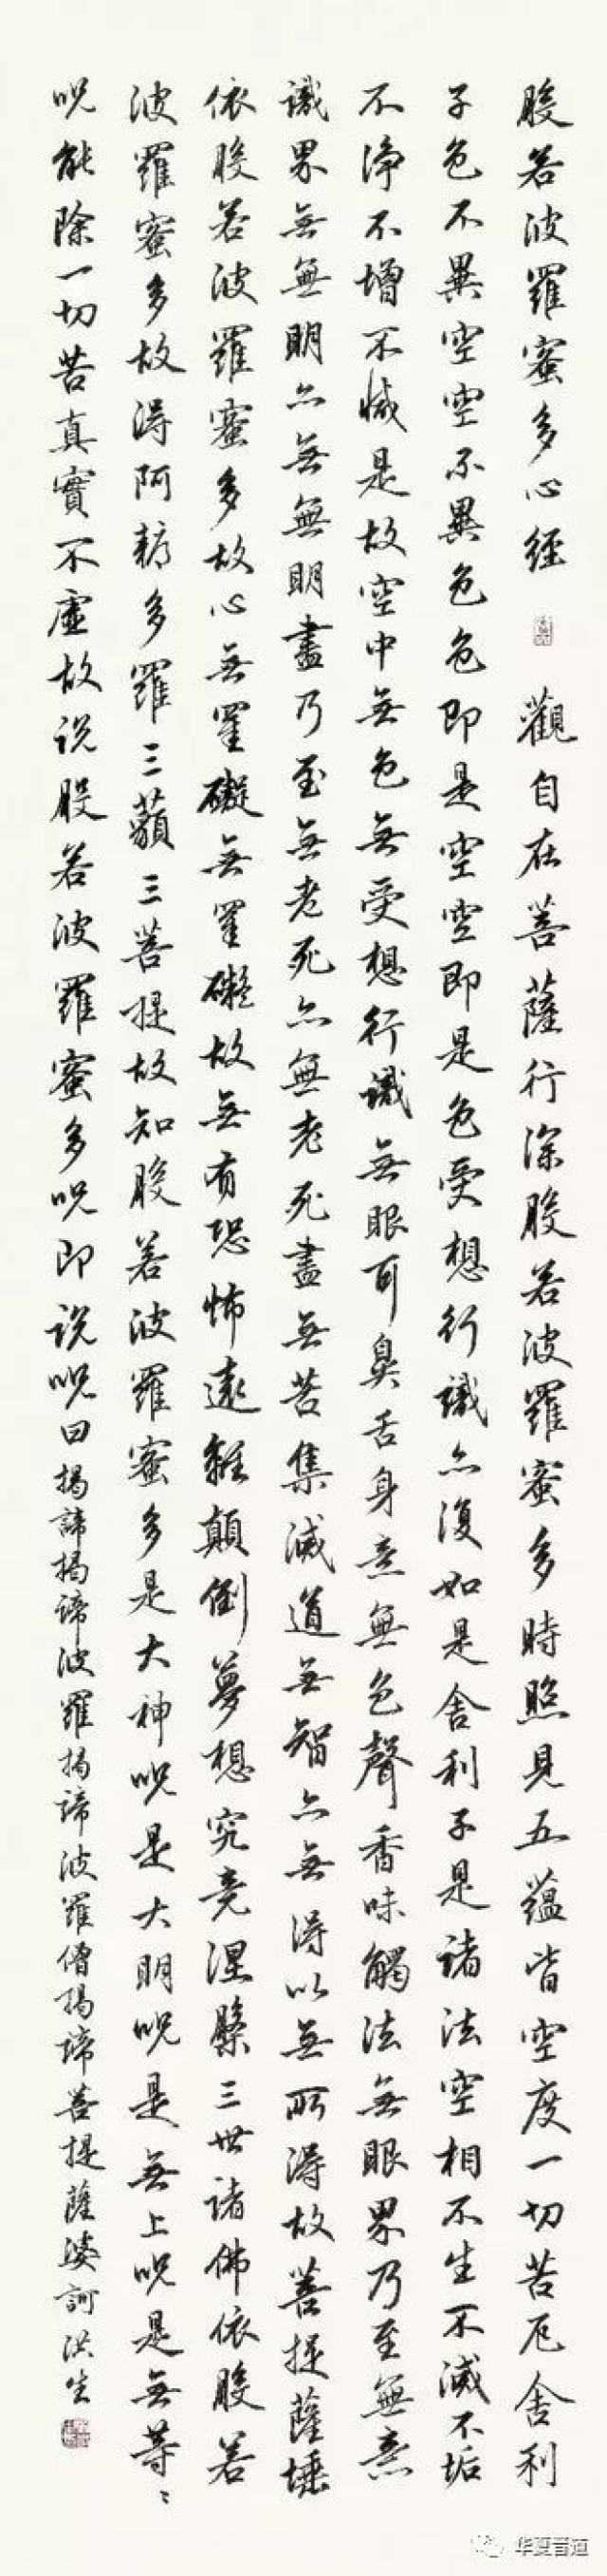 般若波羅蜜多心經 觀自在菩薩行深般若波羅蜜多時照見五蘊皆空度一切苦厄舍利
子色不異空空不異色色即是空空即是色受想行識亦復如是舍利子是諸法空相不生不滅不垢
不淨不增不減是故空中無色無受想行識無眼耳鼻舌身意無色聲香味觸法無眼界乃至無意
識界無無明亦無無明盡乃至無老死亦無老死盡無苦集滅道無智亦無得以無所得故菩提薩埵
依般若波羅蜜多故心無罣礙無罣礙故無有恐怖遠離顛倒夢想究竟涅槃三世諸佛依般若
波羅蜜多故得阿耨多羅三藐三菩提故知般若波羅蜜多是大神呪是大明呪是無上呪是無等〻
呪能除一切苦真實不虛故說般若波羅蜜多呪即說呪曰揭諦揭諦波羅揭諦波羅僧揭諦菩提薩婆訶洪生
华夏晋道